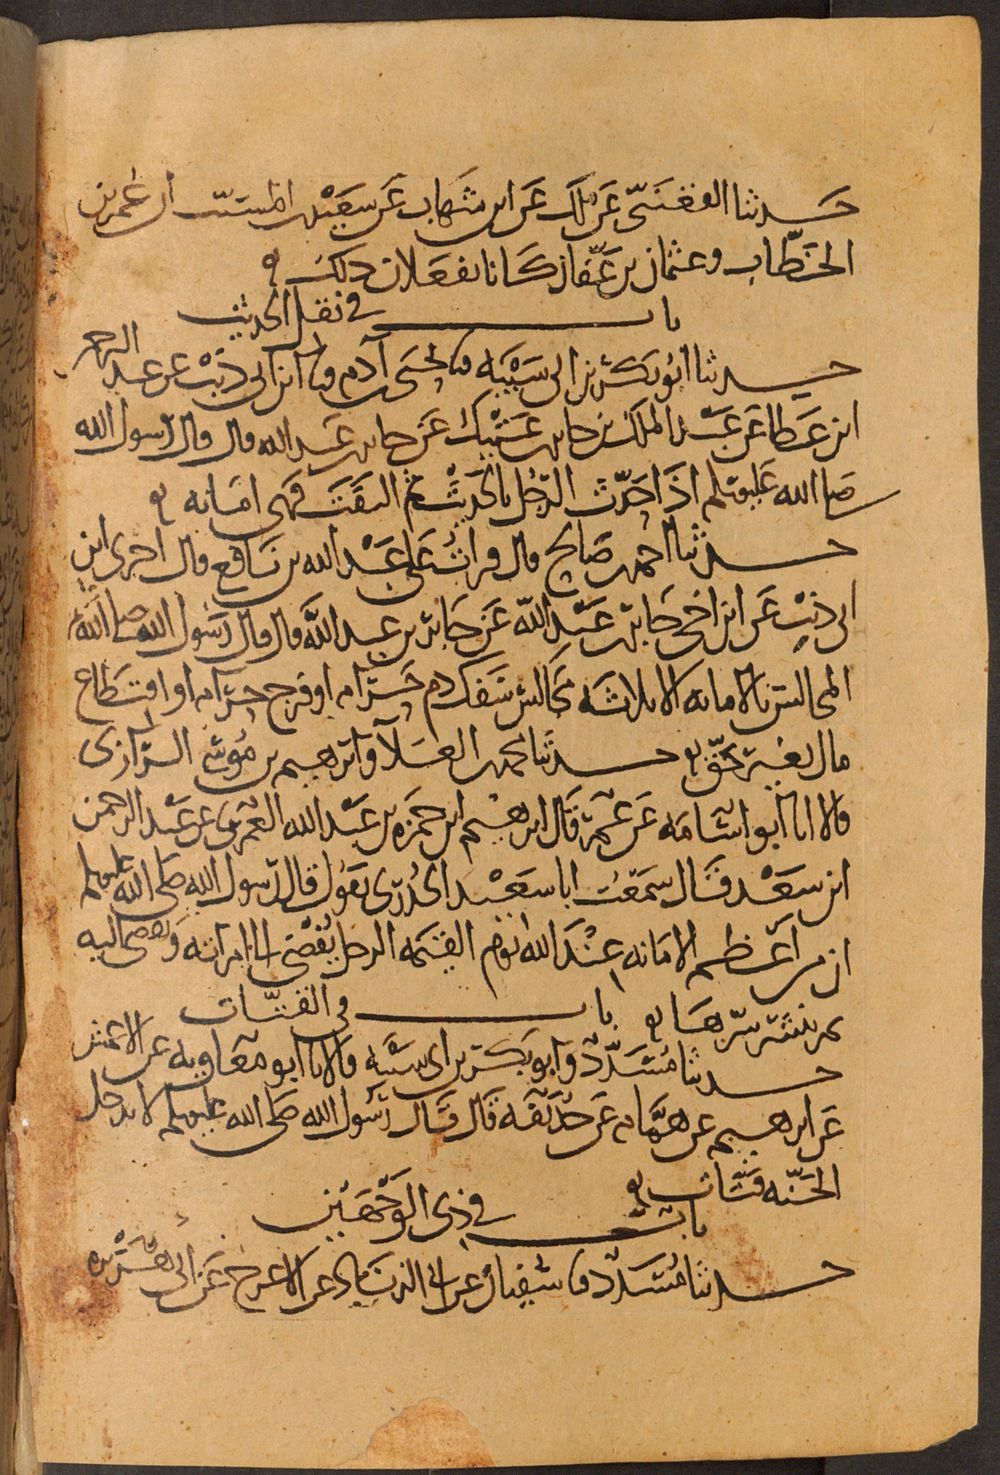 حدثنا القعنبي عن ملك عن ابن شهاب عن سعيد بن المسيب ان عمر بن
الخطاب وعثمان بن عفان كانا يفعلان ذلك
باب في نقل الحديث
حدثنا ابو بكر بن ابي شيبه نا يحيى بن آدم نا ابن ابي ذيب عن عبد الرحمن
ابن عطا عن عبد الملك بن جابر بن عتيك عن جابر بن عبد الله قال قال رسول الله
صلى الله عليه وسلم اذا حدث الرجل بالحديث ثم التفت فهي امانه
حدثنا احمد بن صالح قال قرات على عبد الله بن نافع قال اخبرني ابن
ابي ذيب عن ابن اخي جابر بن عبد الله عن جابر بن عبد الله قال قال رسول الله صلى الله عليه
المجالس بالامانه الا ثلاثه مجالس سفك دم حرام او فرج حرام او اقتطاع
مال بغير حق حدثنا محمد بن العلا وابرهيم بن موسى الرازي
قالا انا ابو اسامه عن عمر قال ابرهيم ابن حمزه بن عبد الله العمري عن عبد الرحمن
ابن سعد قال سمعت ابا سعيد الخدري يقول قال رسول الله صلى الله عليه وسلم
ان من اعظم الامانه عند الله يوم القيمه الرجل يفضي الى امراته وتفضي اليه
ثم ينشر سرها باب في القتات
حدثنا مسدد وابو بكر بن ابي شيبه قالا نا ابو معاويه عن الاعمش
عن ابرهيم عن همام عن حذيفه قال قال رسول الله صلى الله عليه وسلم لا يدخل
الجنه قتات
باب في ذي الوجهين
حدثنا مسدد نا سفيان عن ابي الزناد عن الاعرج عن ابي هريره